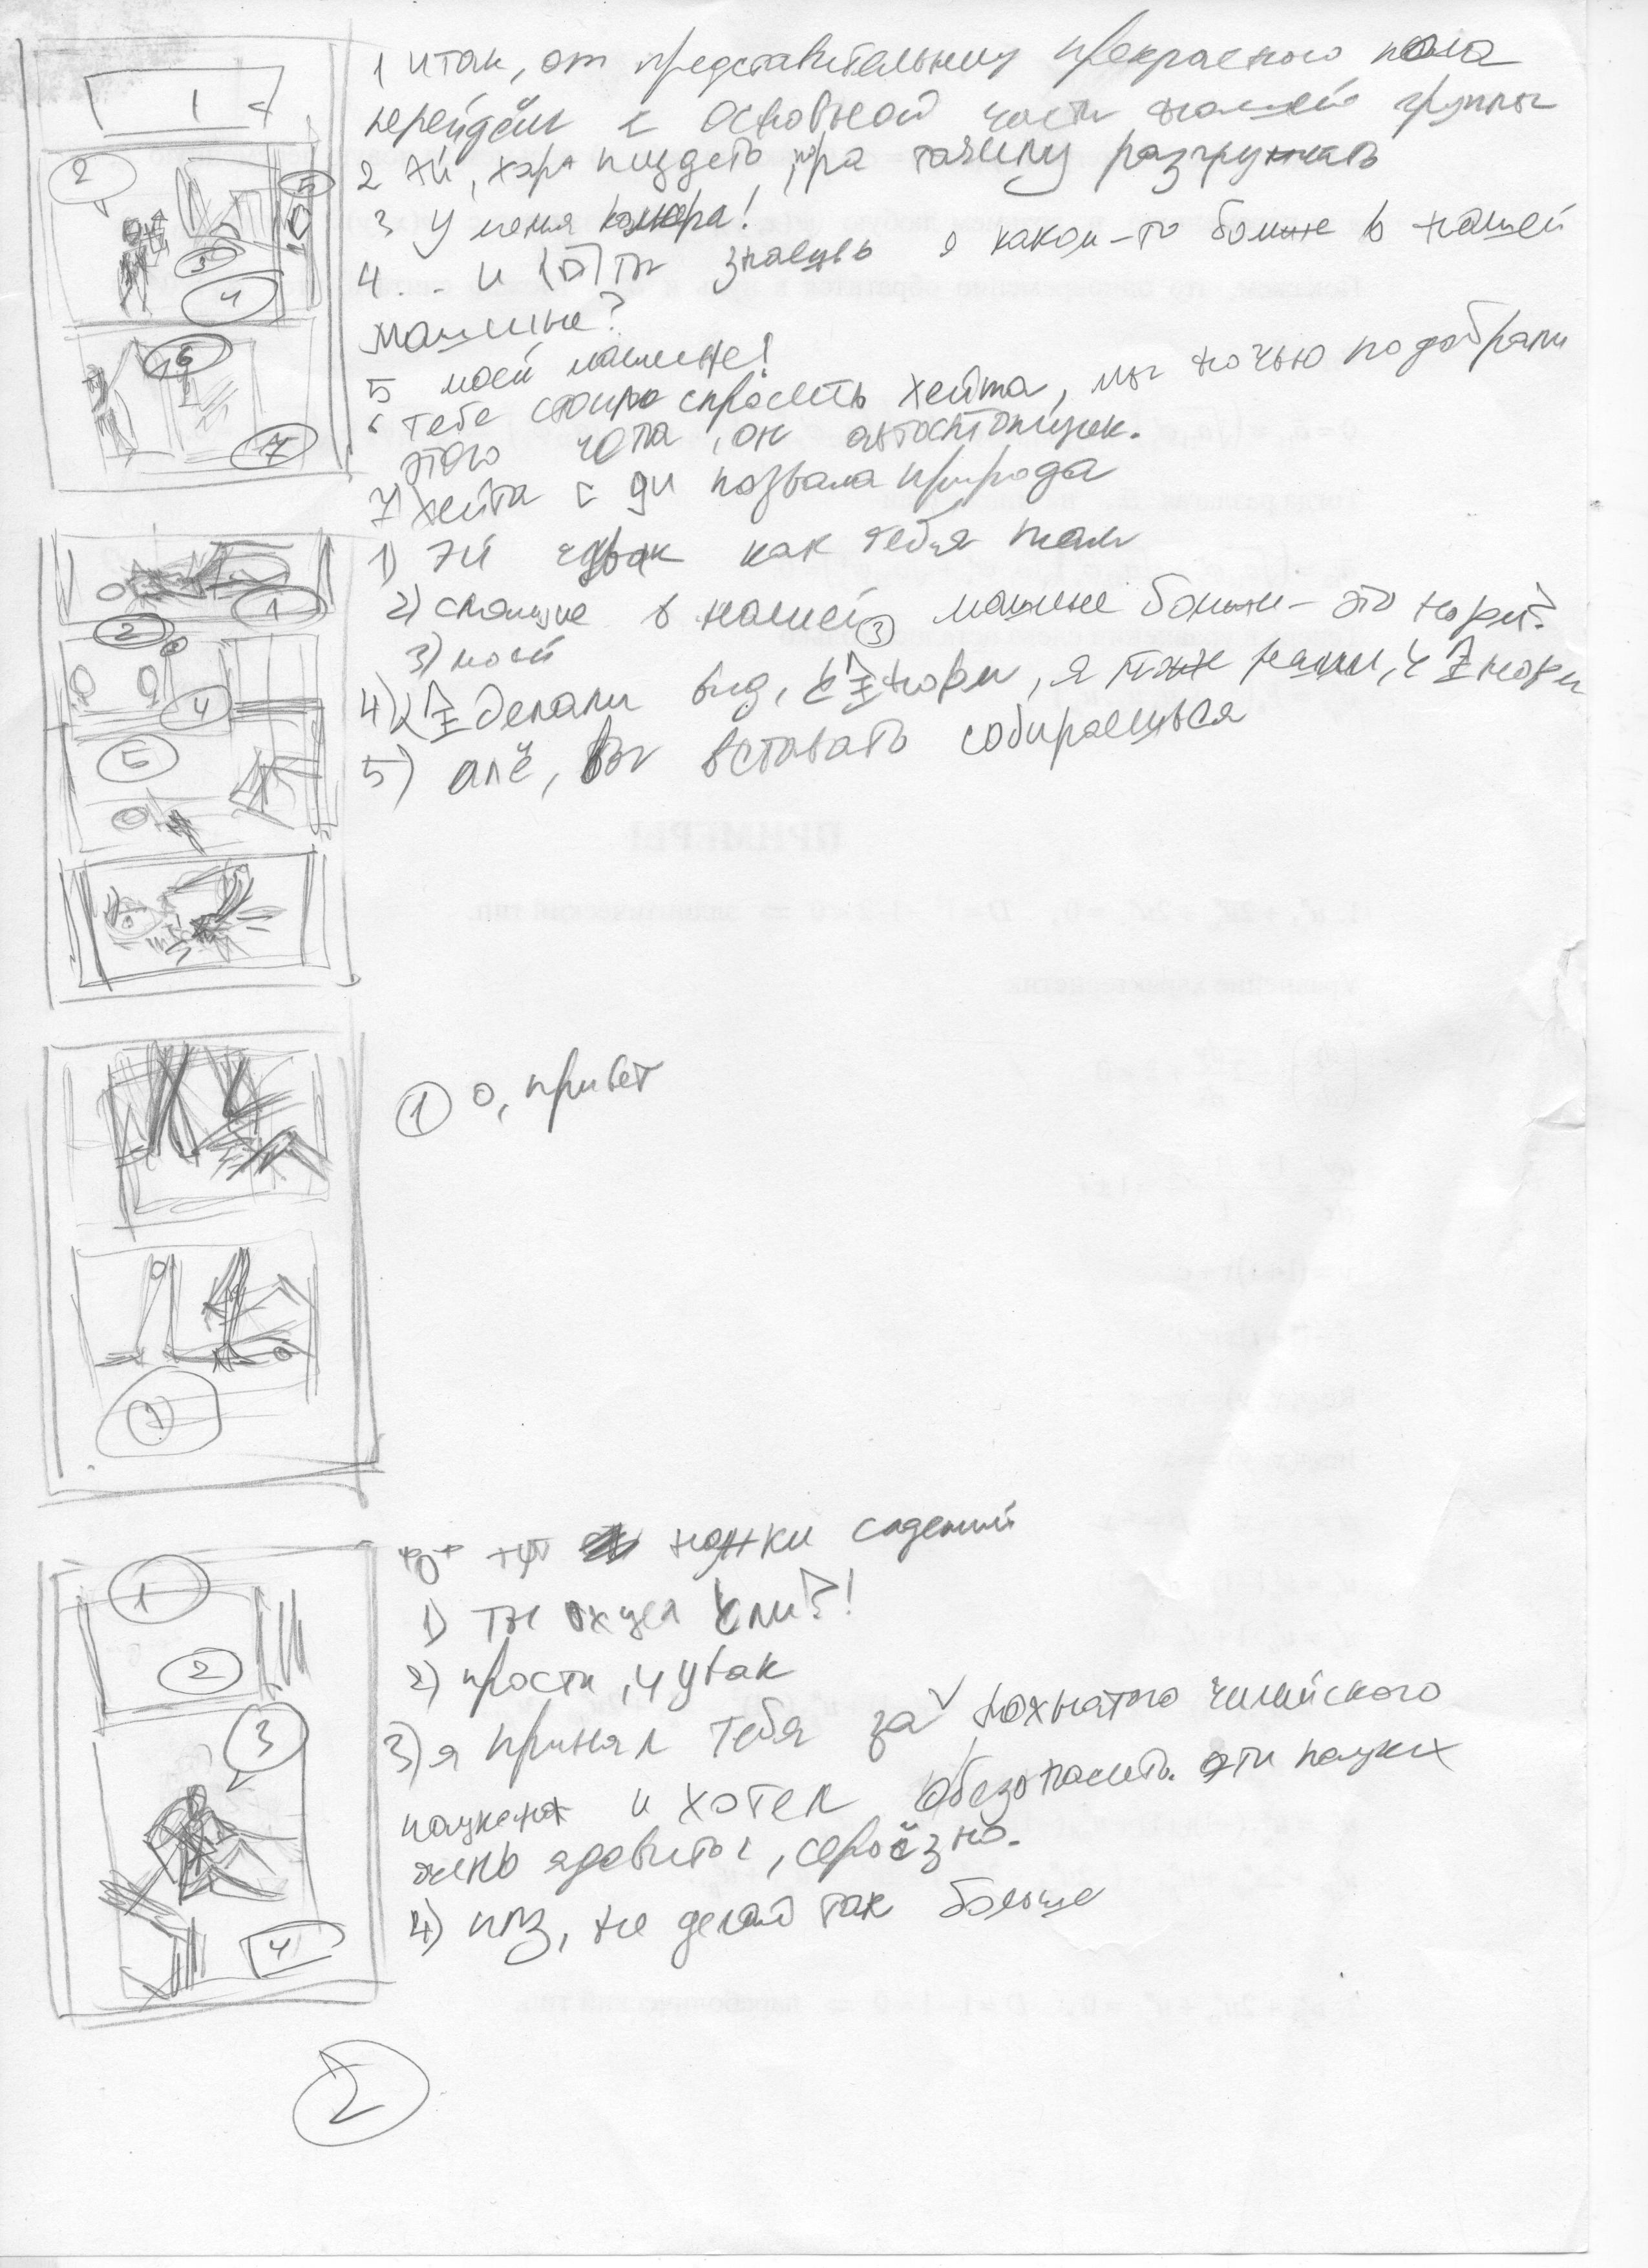 1 итак, от представительниц прекрасного пола
перейдём к основной части нашей группы
2 эй, харэ пиздеть, пора тачилу разгружать
3 у меня камера!
4 ... и ты знаешь о каком-то бомже в нашей
машине?
5 моей машине!
6 тебе стоило спросить хейта, мы ночью подобрали
этого чела, он автостопщик.
7) хейта с ди позвала природа
1) эй чувак как тебя там
2) спящие в нашей машине бомжи - это норм?
3
3) моей
4) делали вид, норм, я тоже норм
5) алё, вы вставать собираешься
1 о, привет
тут ножки сидений
1) ты охуел или?!
2) прости, чувак
3) я принял тебя за мохнатого чилийского
паука и хотел обезопасить. эти пауки
очень ядовиты, серьёзно.
4) плз, не делай так больше
1
2
3
4
5
6
7
1
2
3
4
5
1
1
2
3
4
2
ПРИМЕРЫ